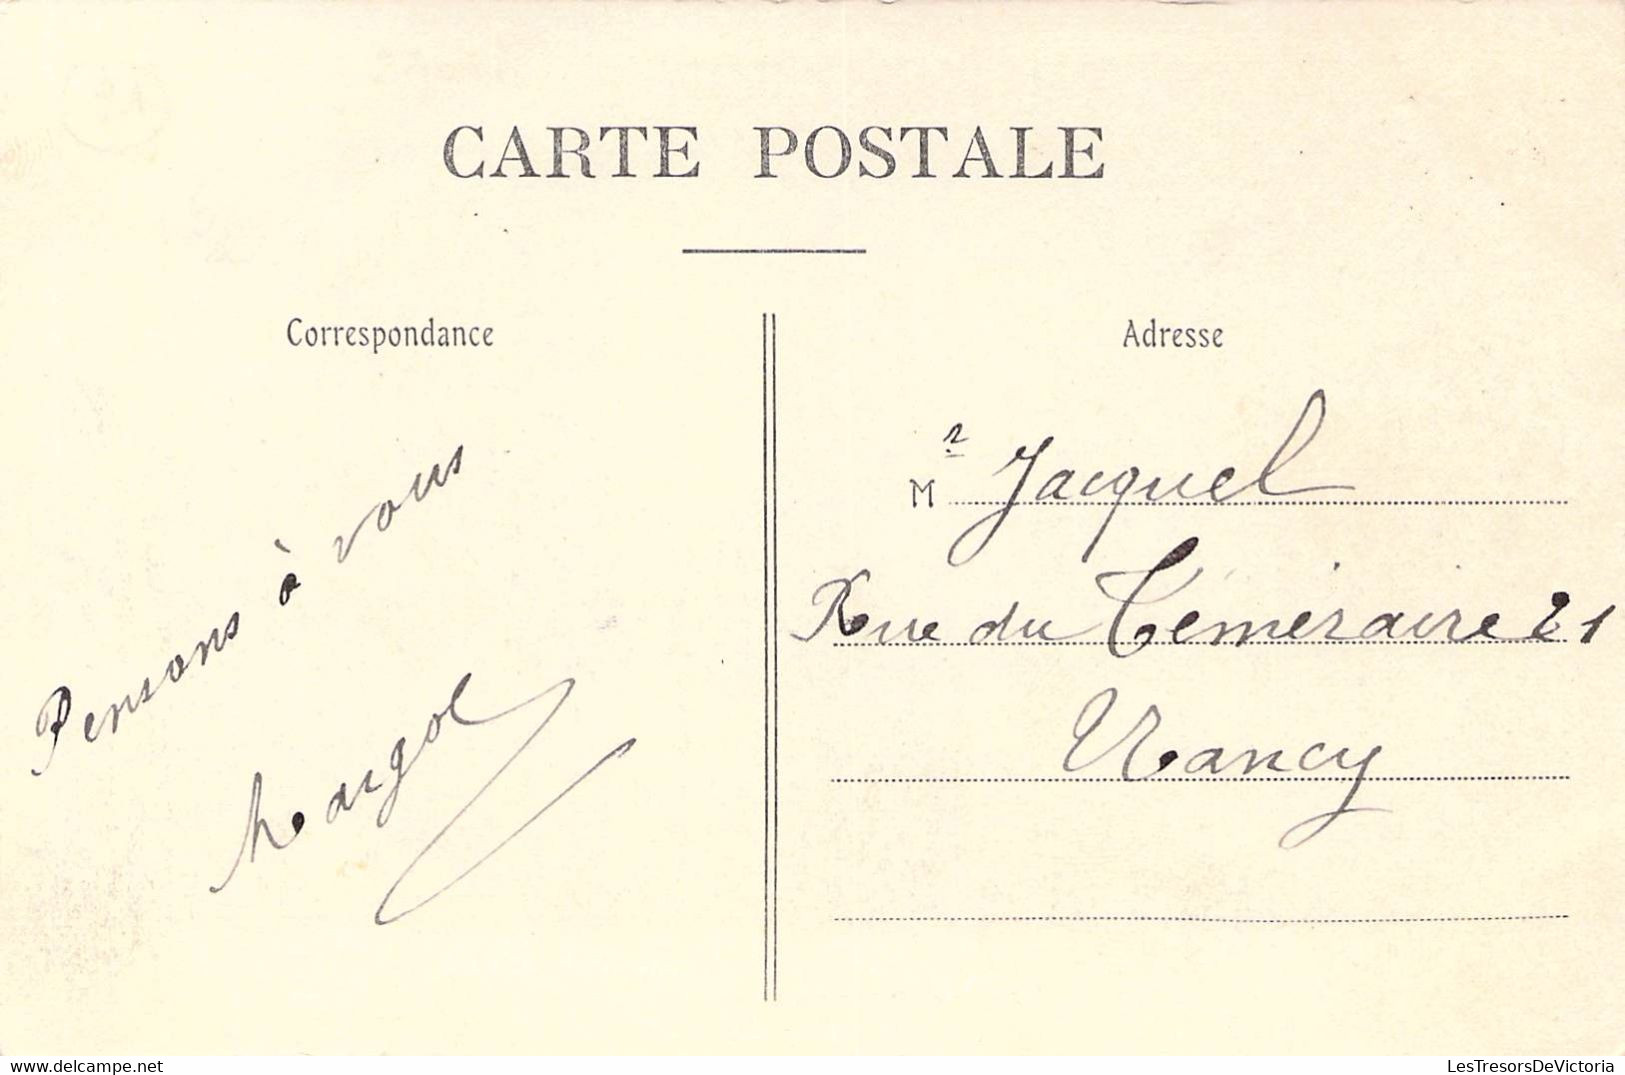 CARTE POSTALE
Correspondance
Pensons à vous
Margot
Adresse
Mr Jacquel
Rue du Téméraire 21
Nancy
LesTresorsDeVictoria